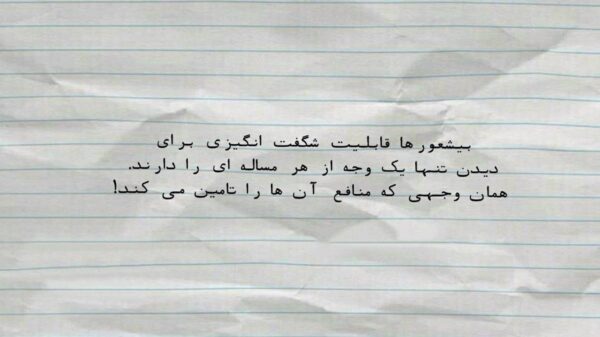 بیشعورها قابلیت شگفت انگیزی برای
دیدن تنها یک وجه از هر مساله ای را دارند.
همان وجهی که منافع آن ها را تامین می کند!